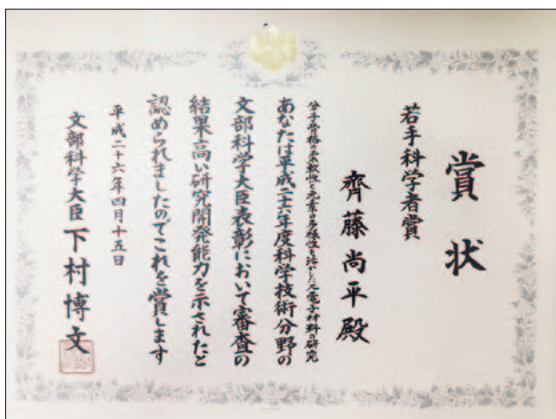 賞状
若手科学者賞
齊藤尚平殿
分子骨格の柔軟性と元素の多様性を活かしたπ電子材料の研究
あなたは平成二十六年度科学技術分野の
文部科学大臣表彰において審査の
結果高い研究開発能力を示されたと
認められましたのでこれを賞します
平成二十六年四月十五日
文部科学大臣 下村博文